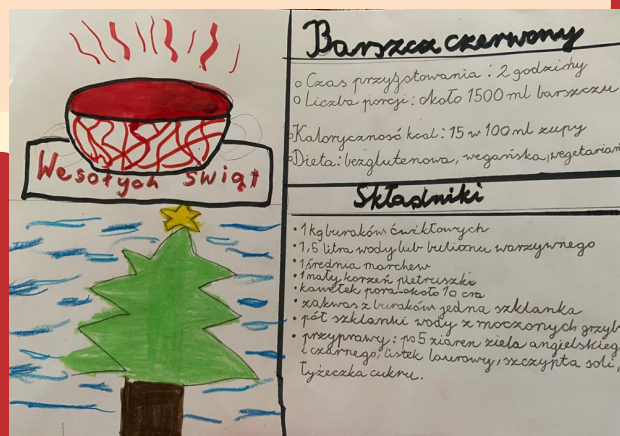 Wesołych świąt
Barszcz czerwony
Czas przygotowania: 2 godziny
Liczba porcji: około 1500 ml barszczu
Kaloryczność kcal: 15 w 100 ml zupy
Dieta: bezglutenowa, wegańska, wegetariań
Składniki
• 1 kg buraków ćwikłowych
• 1,5 litra wody lub bulionu warzywnego
• 1 średnia marchew
• 1 mały korzeń pietruszki
• kawałek pora-około 10 cm
• zakwas z buraków jedna szklanka
• pół szklanki wody z moczonych grzyb
• przyprawy: po 5 ziaren ziela angielskieg
i czarnego, listek laurowy, szczypta soli,
łyżeczka cukru.